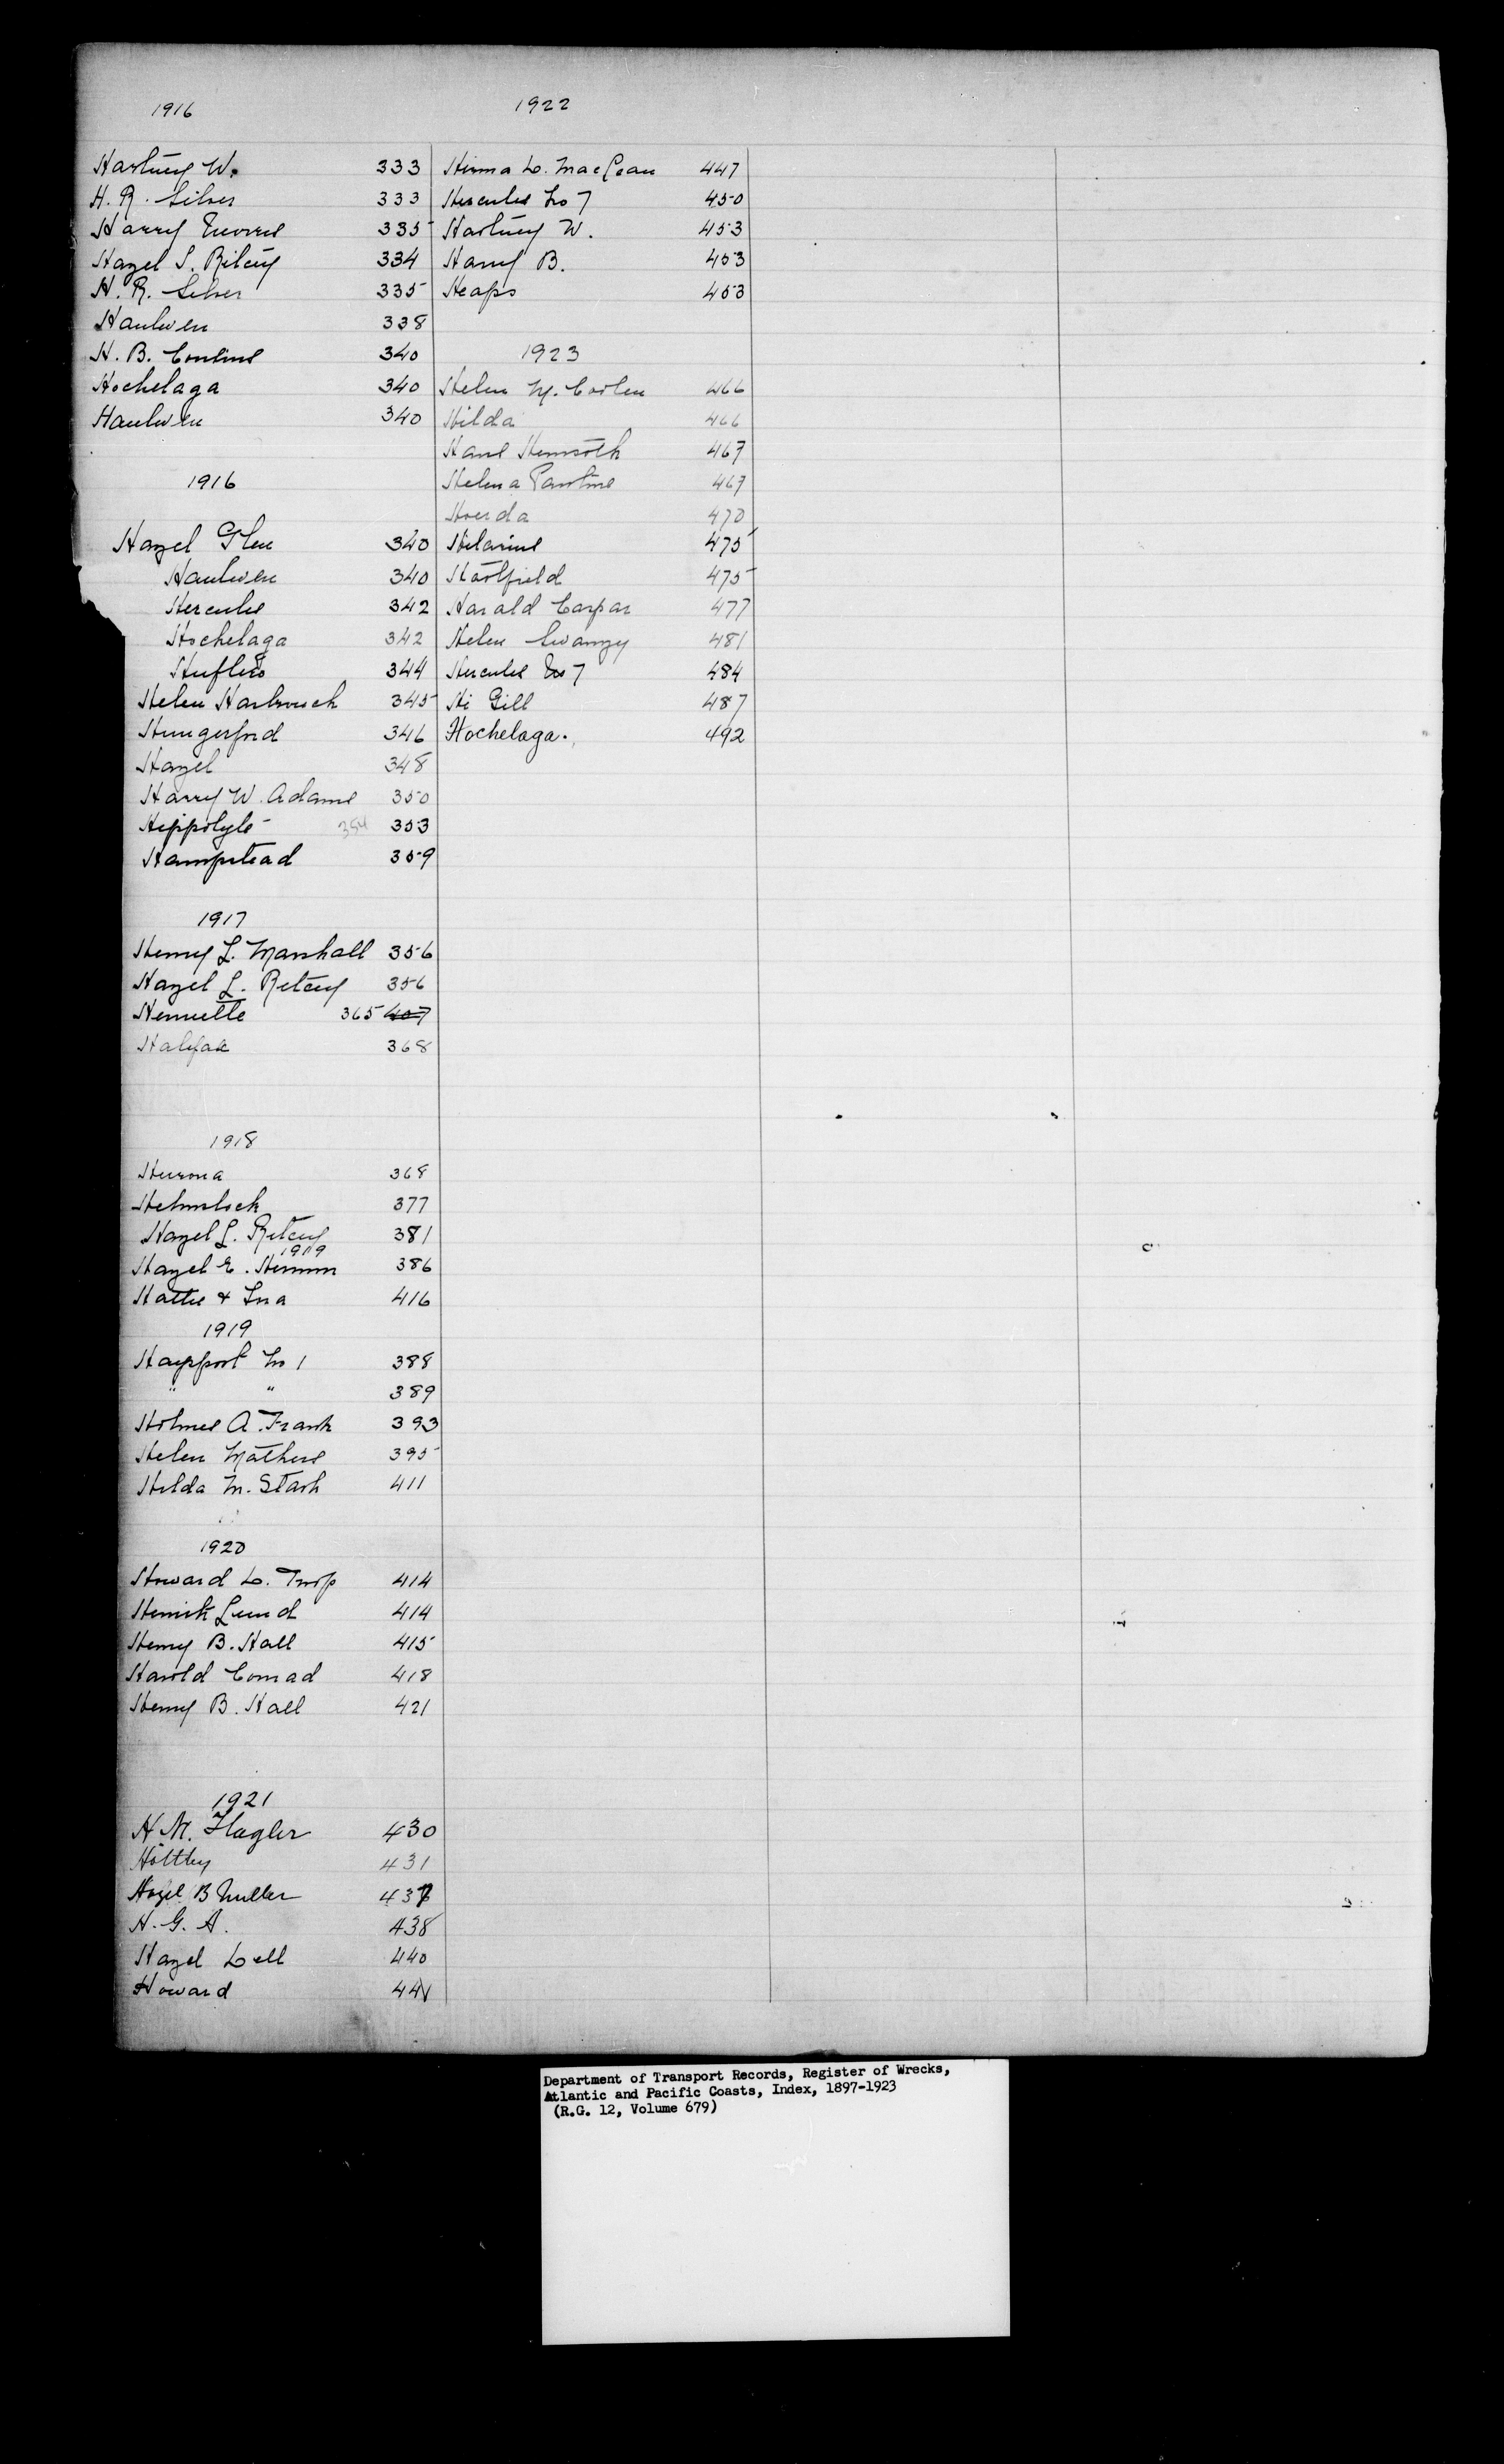 1916
Hartney W. 333
H. R. Silver 333
Harry 335
Hazel L. Ritcey 334
H. R. Silver 335
Haulwen 338
H. B. Cousins 340
Hochelaga 340
Haulwen 340
1916
Hazel Glen 340
Haulwen 340
Hercules 342
Hochelaga 342
344
Helen 345
Hungerford 346
Hazel 348
Harry W. Adams 350
Hippolyte 354 353
Hampstead 359
1917
Henry L. Marshall 356
Hazel L. Ritcey 356
Henriette 365 407
Halifax 368
1918
Hurona 368
Helmlock 377
Hazel L. Ritcey 381
1919
Hazel E. Herman 386
Hattie & Ina 416
1919
Haysport No 1 388
" " 389
Holmes A. Frank 393
Helen Mathers 395
Hilda M. Stark 411
1920
Howard D. Troop 414
Henrik Lund 414
Henry B. Hall 415
Harold Conrad 418
Henry B. Hall 421
1921
H M. Flagler 430
431
Hazel B Muller 437
H. G. A. 438
Hazel Dell 440
Howard 441
1922
Herma D. MacLean 447
Hercules No 7 450
Hartney W. 453
Harry B. 453
Heaps 453
1923
Helen M. Coolen 466
Hilda 466
Hans Hemsoth 467
Helena Pauline 467
470
Hilarius 475
Hatfield 475
Harald Caspar 477
Helen Swanzy 481
Hercules No 7 484
Hi Gill 487
Hochelaga. 492
Department of Transport Records, Register of Wrecks,
Atlantic and Pacific Coasts, Index, 1897-1923
(R.G. 12, Volume 679)